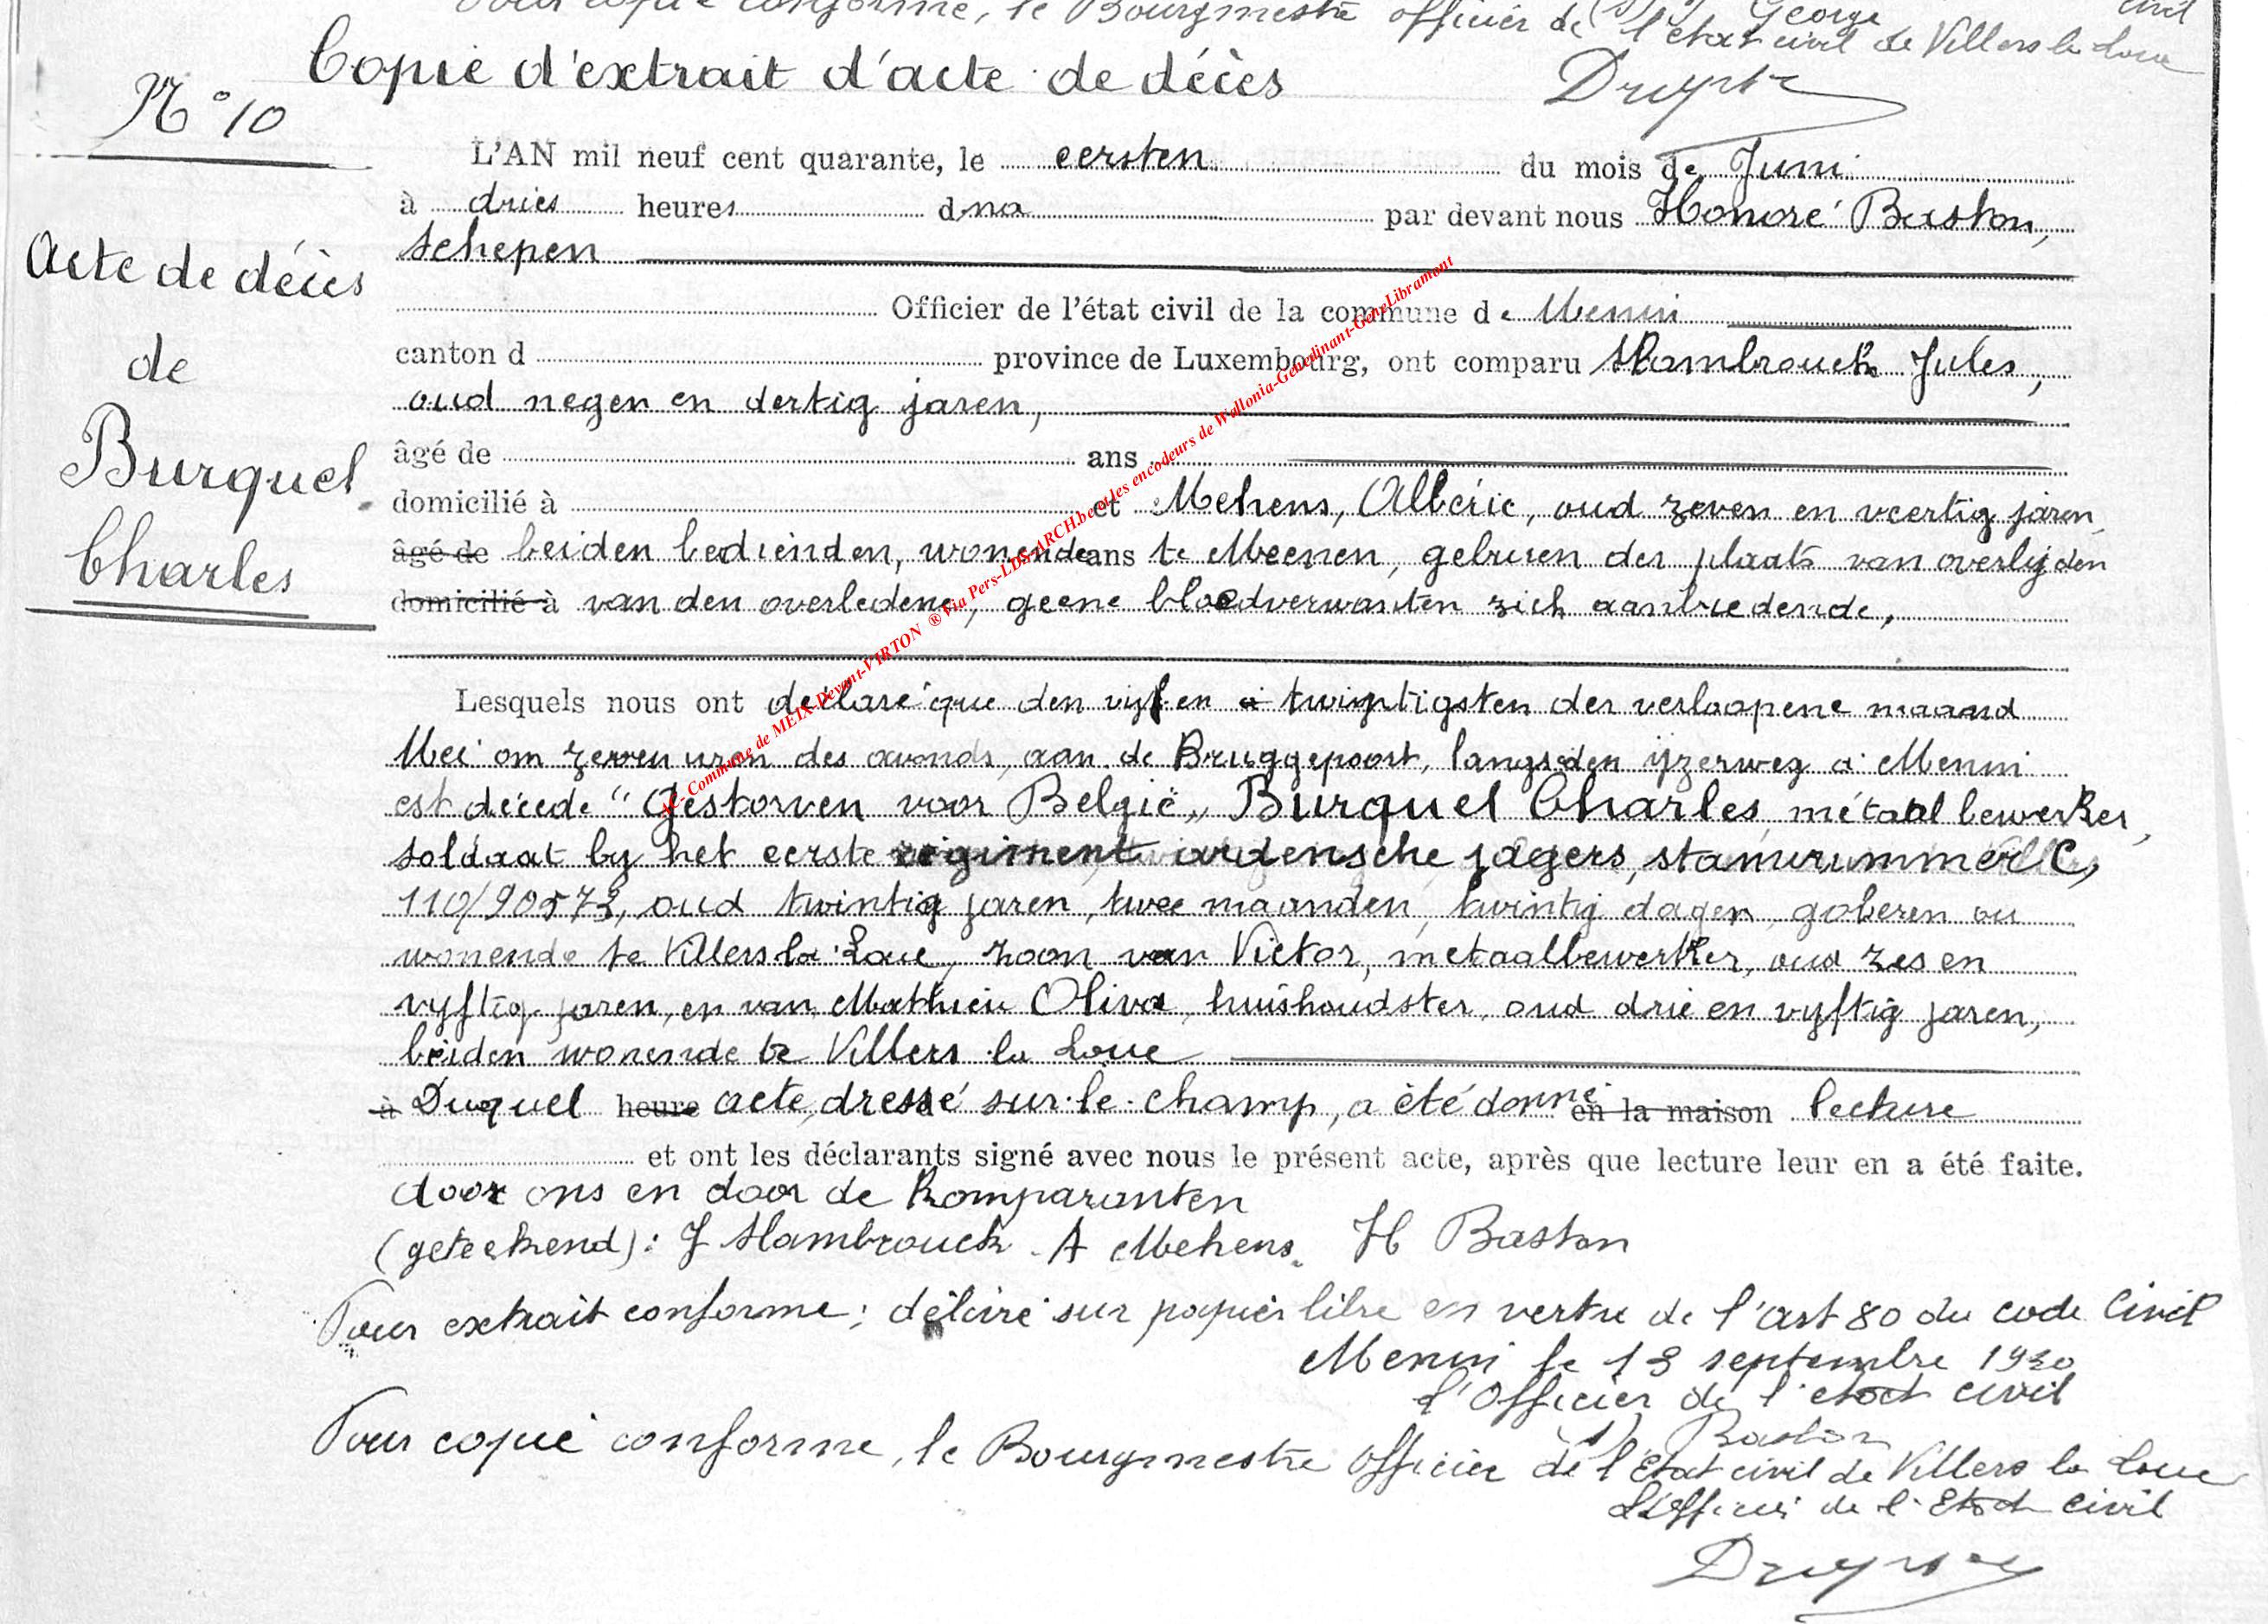 Pour copie conforme, le Bourgmestre officier de l'état civil de Villers la Loue
George
civil
Copie d'extrait d'acte de décès
N° 10
L'AN mil neuf cent quarante, le eersten du mois de Juni
à dries heures dna par devant nous Honoré Baston,
Schepen
Acte de décès
de
Burquel
Charles
Officier de l'état civil de la commune de Menin
canton d province de Luxembourg, ont comparu Hambrouck Jules,
oud negen en dertig jaren,
âgé de ans
domicilié à et Mehens, Albéric, oud zeven en veertig jaren,
âgé de beiden bedienden, wonende ans te Meenen, geburen der plaats van overlijden
domicilié à van den overledene, geene bloedverwanten zich aanbiedende,
Lesquels nous ont déclaré que den vijf en twintigsten der verloopene maand
Mei om zeven uren des avonds, aan de Bruggepoort, langs den ijzerweg à Menin
est décédé "Gestorven voor België„ Burquel Charles, métaalbewerker,
soldaat by het eerste régiment ardensche jagers, stamnummer C,
110/90573, oud twintig jaren, twee maanden, twintig dagen, goberen ou
wonende te Villers la Loue, zoon van Victor, metaalbewerker, oud zes en
vyftig jaren, en van Mathieu Oliva, huishoudster, oud drie en vyftig jaren,
beiden wonende te Villers la Loue
à Duquel heure acte, dressé sur-le-champ, a été donné en la maison lecture
et ont les déclarants signé avec nous le présent acte, après que lecture leur en a été faite.
door ons en door de komparanten
(geteekend): J Hambrouck A Mehens. H Baston
Pour extrait conforme; délivré sur papier libre en vertu de l'art 80 du code Civil
Menin le 13 septembre 1940
L'Officier de l'état civil
(s) Baston
Pour copie conforme, le Bourgmestre officier de l'Etat civil de Villers la Loue
L'Officier de l'Etat civil
AC- Commune de MEIX-Devant-VIRTON ® Via Pers-LDS-ARCH.be et les encodeurs de Wallonia-Genedinant-GeneLibramont